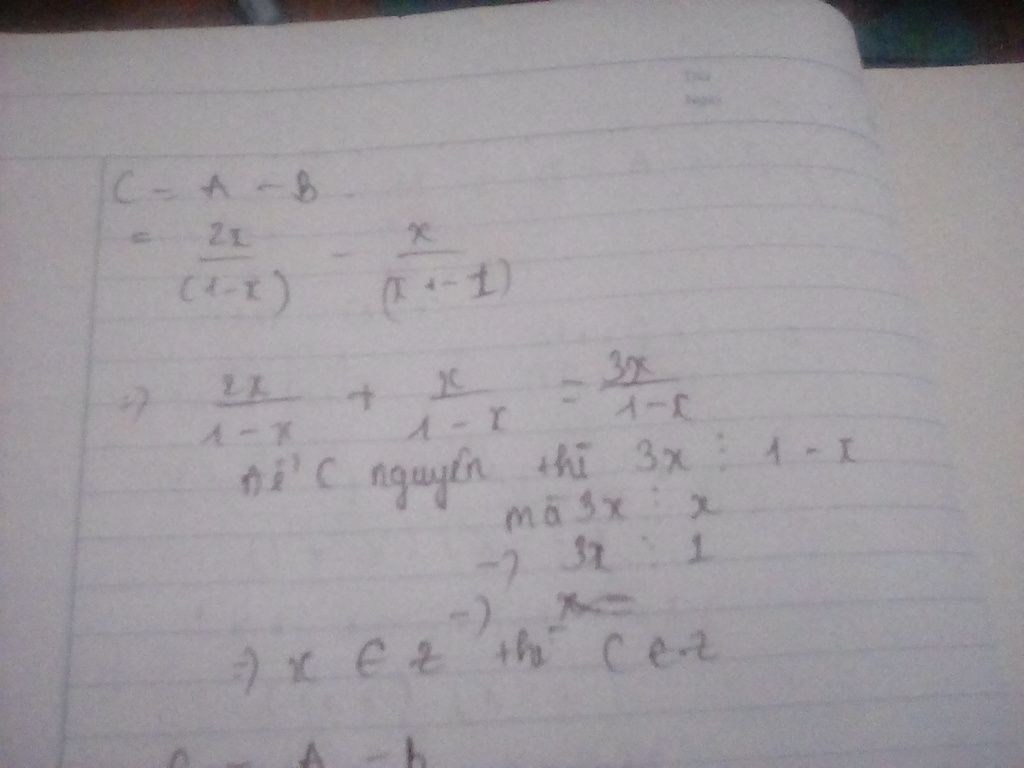 C = A - B
= 2x/(1-x) - x/(x+-1)
=> 2x/1-x + x/1-x = 3x/1-x
Để C nguyên thì 3x ⋮ 1-x
mà 3x ⋮ x
=> 3x ⋮ 1
=> x =
=> x ∈ Z thì C ∈ Z
C = A - B